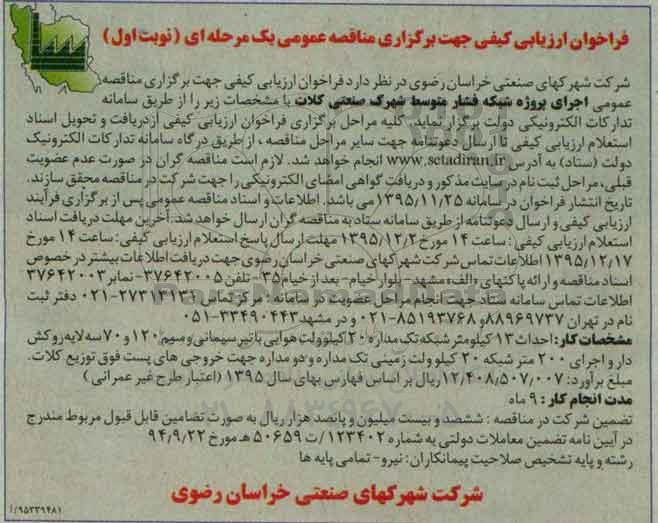 فراخوان ارزیابی کیفی جهت برگزاری مناقصه عمومی یک مرحله ای (نوبت اول)
شرکت شهرکهای صنعتی خراسان رضوی در نظر دارد فراخوان ارزیابی کیفی جهت برگزاری مناقصه
عمومی اجرای پروژه شبکه فشار متوسط شهرک صنعتی کلات با مشخصات زیر را از طریق سامانه
تدارکات الکترونیکی دولت برگزار نماید. کلیه مراحل برگزاری فراخوان ارزیابی کیفی از دریافت و تحویل اسناد
استعلام ارزیابی کیفی تا ارسال دعوتنامه جهت سایر مراحل مناقصه ، از طریق درگاه سامانه تدارکات الکترونیک
دولت (ستاد) به آدرس www.setadiran.ir انجام خواهد شد. لازم است مناقصه گران در صورت عدم عضویت
قبلی، مراحل ثبت نام در سایت مذکور و دریافت گواهی امضای الکترونیکی را جهت شرکت در مناقصه محقق سازند.
تاریخ انتشار فراخوان در سامانه ۱۳۹۵/۱۱/۲۵ می باشد. اطلاعات و اسناد مناقصه عمومی پس از برگزاری فرآیند
ارزیابی کیفی و ارسال دعوتنامه از طریق سامانه ستاد به مناقصه گران ارسال خواهد شد. آخرین مهلت دریافت اسناد
استعلام ارزیابی کیفی : ساعت ۱۴ مورخ ۱۳۹۵/۱۲/۲ مهلت ارسال پاسخ استعلام ارزیابی کیفی: ساعت ۱۴ مورخ
۱۳۹۵/۱۲/۱۷ اطلاعات تماس شرکت شهرکهای صنعتی خراسان رضوی جهت دریافت اطلاعات بیشتر در خصوص
اسناد مناقصه و ارائه پاکتهای «الف»: مشهد- بلوار خیام- بعد از خیام ۳۵- تلفن ۳۷۶۴۲۰۰۵- نمابر ۳۷۶۴۲۰۰۳
اطلاعات تماس سامانه ستاد جهت انجام مراحل عضویت در سامانه : مرکز تماس ۲۷۳۱۳۱۳۱-۰۲۱ دفتر ثبت
نام در تهران ۸۸۹۶۹۷۳۷ و ۸۵۱۹۳۷۶۸-۰۲۱ و در مشهد ۳۳۴۹۰۴۴۳-۰۵۱
مشخصات کار: احداث ۱۳ کیلومتر شبکه تک مداره ۲۰ کیلوولت هوایی با تیر سیمانی و سیم ۱۲۰ و ۷۰ سه لایه روکش
دار و اجرای ۲۰۰ متر شبکه ۲۰ کیلوولت زمینی تک مداره و دو مداره جهت خروجی های پست فوق توزیع کلات.
مبلغ برآورد: ۱۲/۴۰۸/۵۰۷/۰۰۷ ریال بر اساس فهارس بهای سال ۱۳۹۵ (اعتبار طرح غیر عمرانی)
مدت انجام کار: ۹ ماه
تضمین شرکت در مناقصه : ششصد و بیست میلیون و پانصد هزار ریال به صورت تضامین قابل قبول مربوط مندرج
در آیین نامه تضمین معاملات دولتی به شماره ۱۲۳۴۰۲/ت ۵۰۶۵۹ هـ مورخ ۹۴/۹/۲۲
رشته و پایه تشخیص صلاحیت پیمانکاران: نیرو- تمامی پایه ها
شرکت شهرکهای صنعتی خراسان رضوی
۹۵۳۳۹۴۸۱/آ